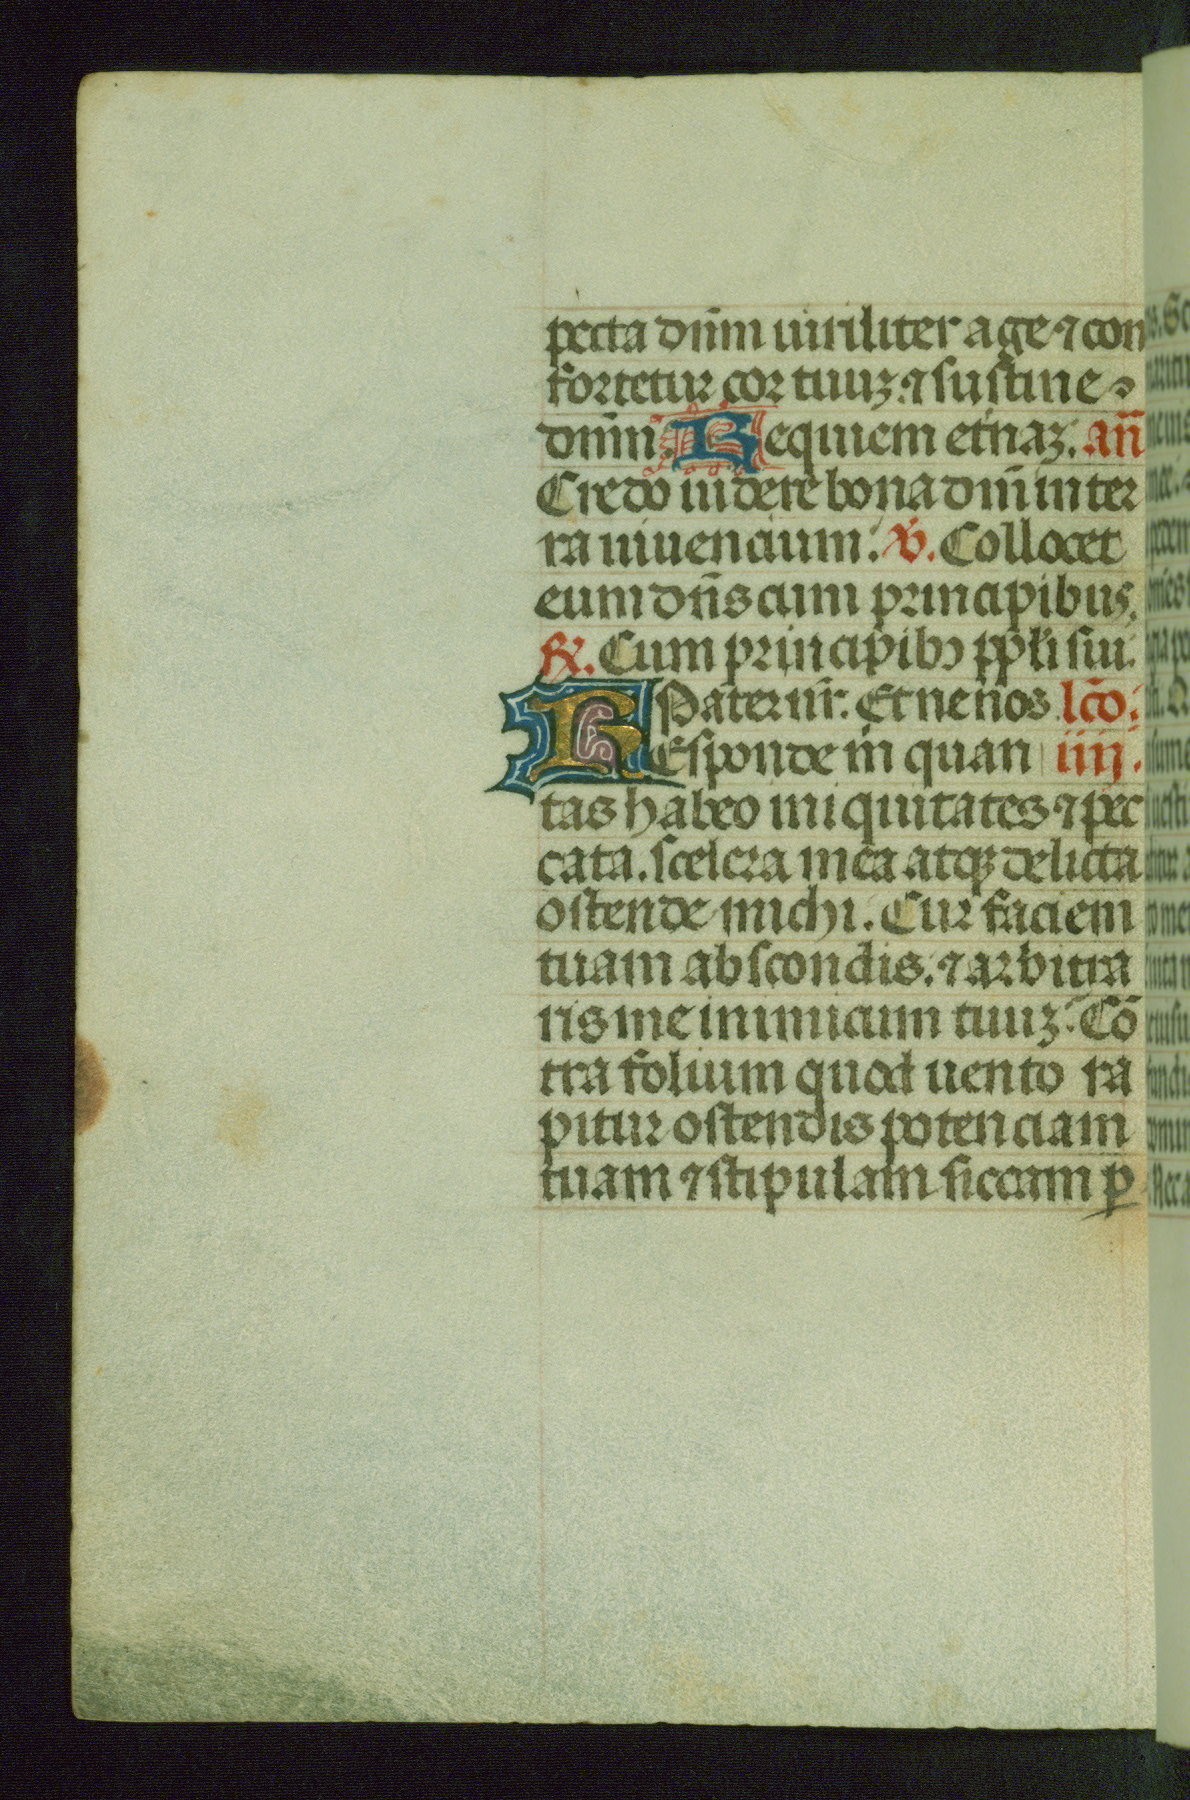 pecta dñm uiriliter age ⁊ con
fortetur cor tuuꝫ. ⁊ sustine
dñm. Requiem etnãꝫ. añ
Credo uidere bona dñi in ter
ra uiuencium. ℣. Collocet
eum dñs cum principibus.
℟. Cum principibꝯ ppl̃i sui.
Pater nr̃. Et ne nos lcõ.
Responde m̃ quan iiij.
tas habeo iniquitates ⁊ pec
cata. scelera mea atqꝫ delicta
ostende michi. Cur faciem
tuam abscondis. ⁊ arbitra
ris me inimicum tuuꝫ. Cõ
tra folium quod uento ra
pitur ostendis potenciam
tuam ⁊ stipulam siccam ꝑ